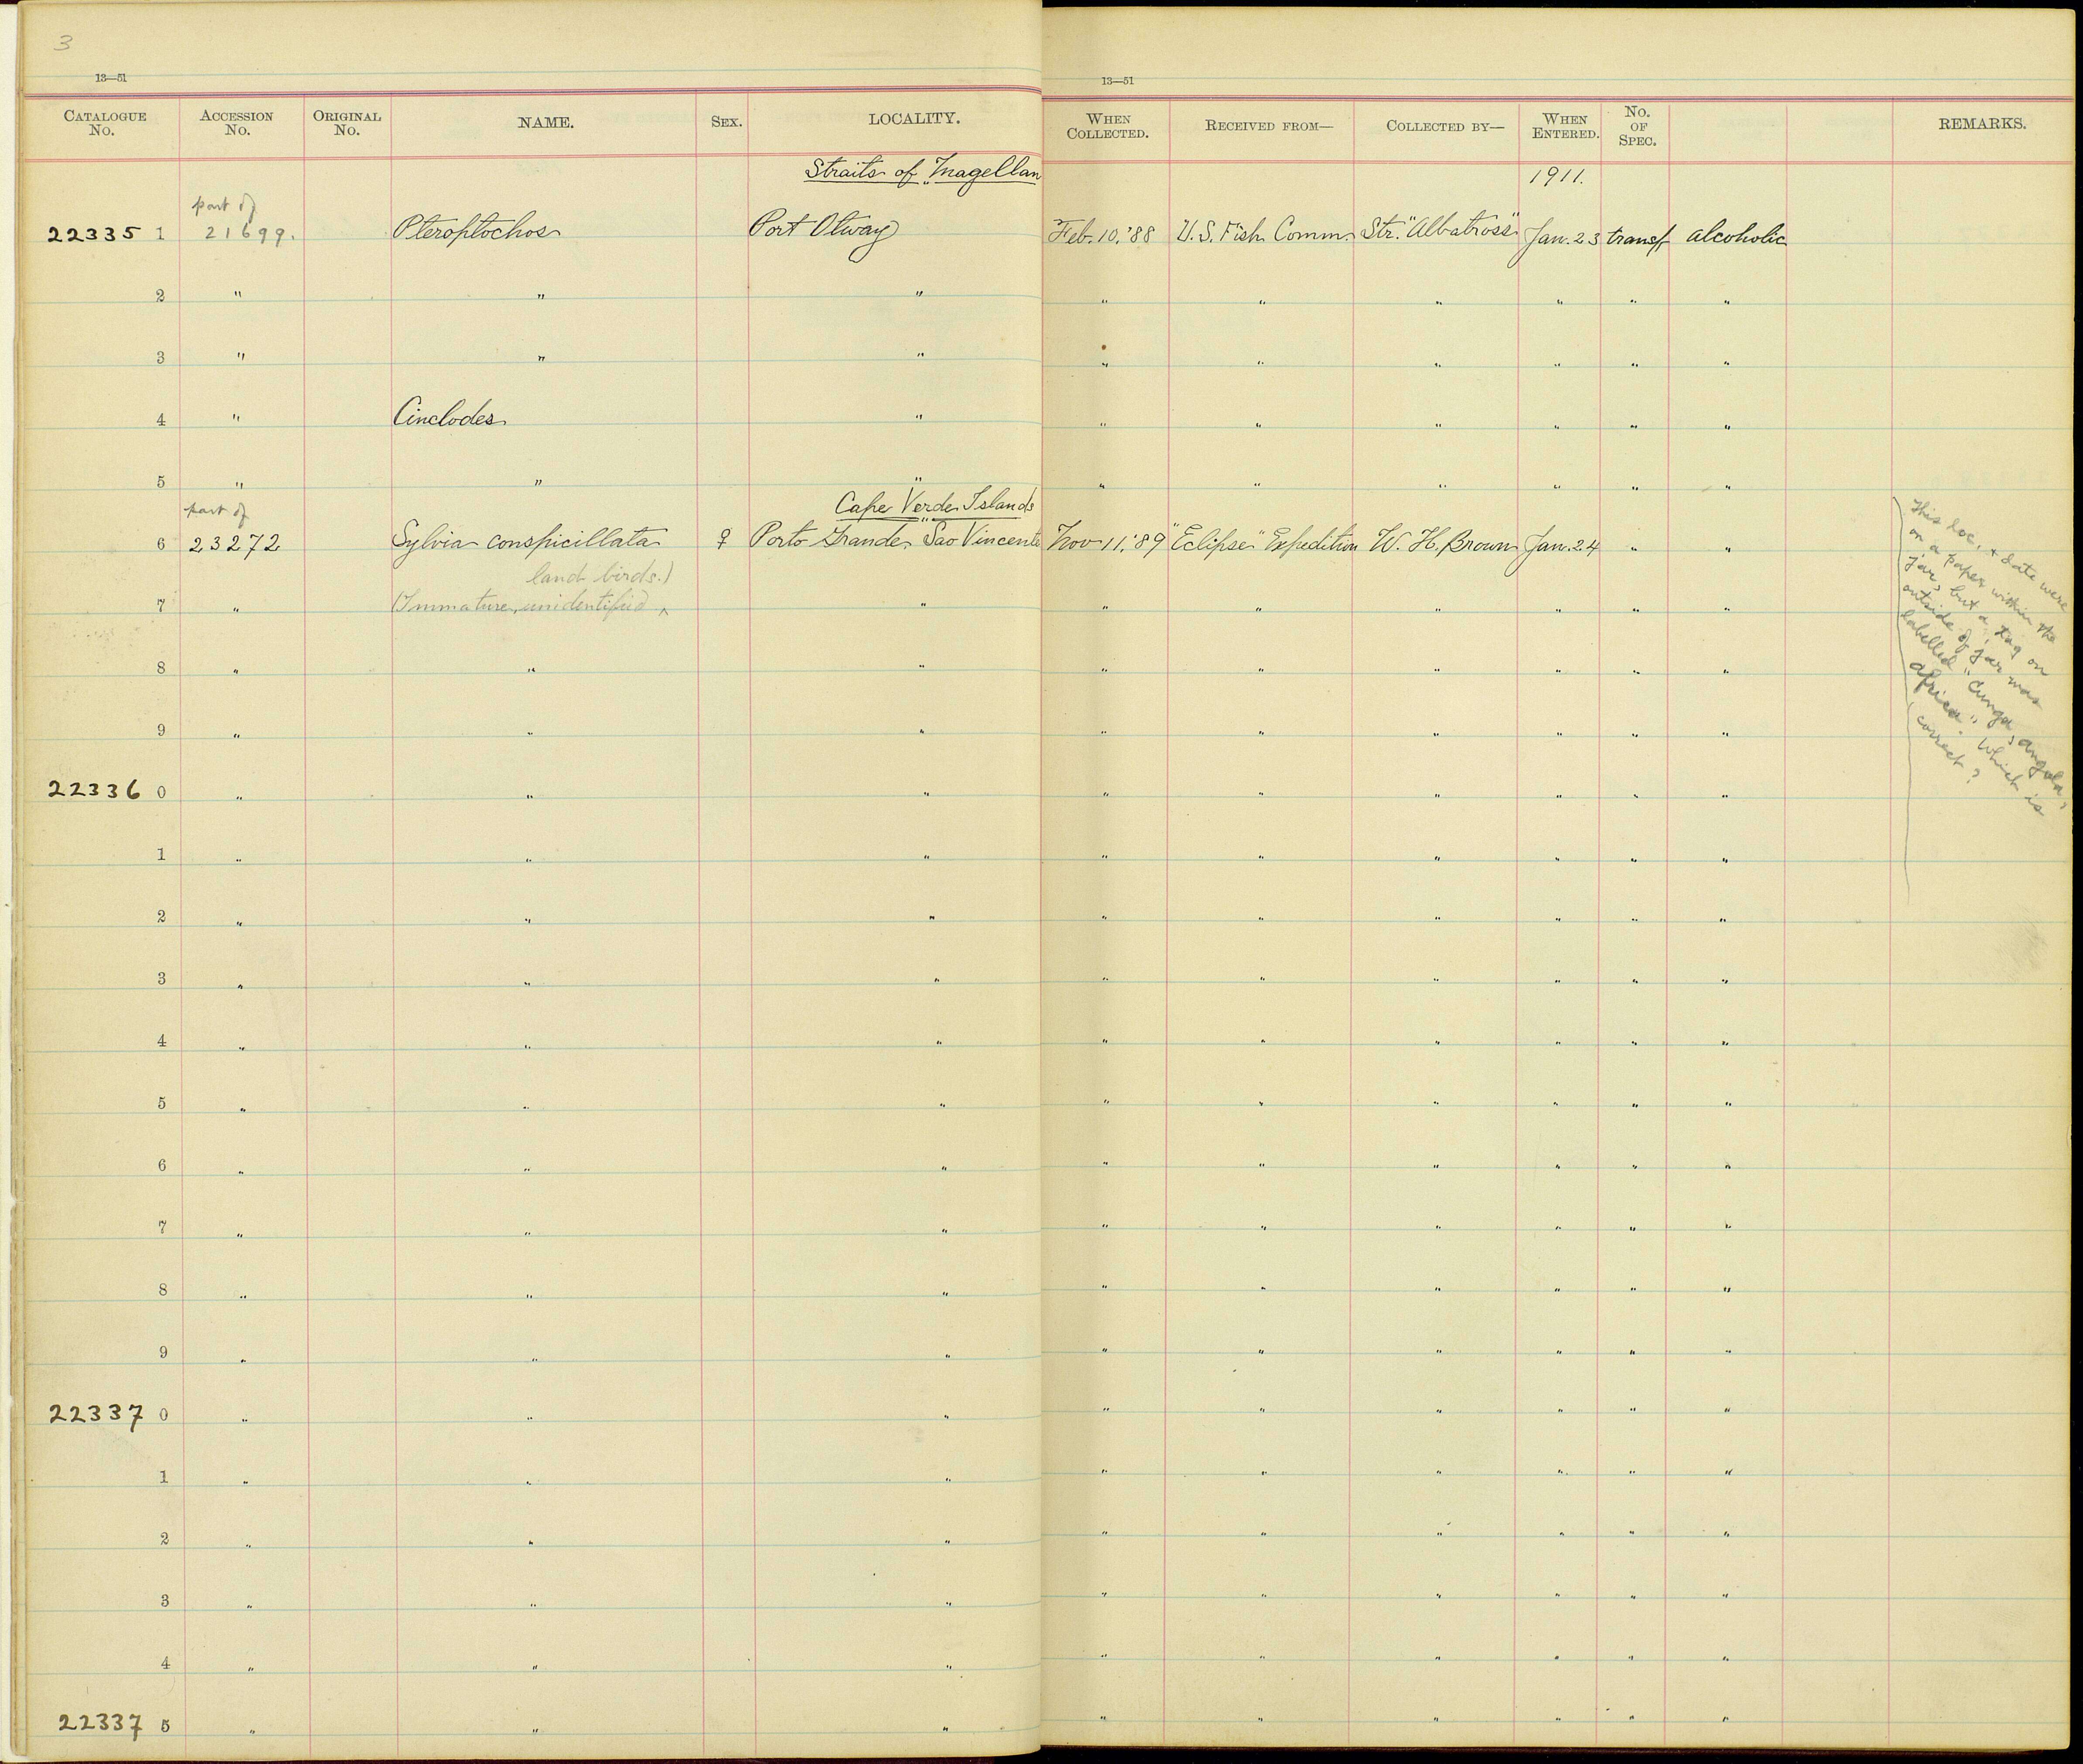 3
13—51
13—51
CATALOGUE No. ACCESSION No. ORIGINAL No. NAME. SEX. LOCALITY. WHEN COLLECTED. RECEIVED FROM— COLLECTED BY— WHEN ENTERED. No. OF SPEC. REMARKS.
Straits of Magellan 1911.
part of
22335 1 21699. Pteroptochos Port Otway Feb. 10, '88 U.S. Fish Comm. Str. "Albatross" Jan. 23 transf. alcoholic
2 " " " " " " " " "
3 " " " " " " " " "
4 " Cinclodes " " " " " " "
5 " " " " " " " " "
part of Cape Verde Islands
6 23272 Sylvia conspicillata ♀ Porto Grande, Sao Vincente Nov 11, '89 "Eclipse" Expedition W. H. Brown Jan. 24 " "
land birds.)
7 " (Immature, unidentified ^ " " " " " " "
8 " " " " " " " " "
9 " " " " " " " " "
22336 0 " " " " " " " " "
1 " " " " " " " " "
2 " " " " " " " " "
3 " " " " " " " " "
4 " " " " " " " " "
5 " " " " " " " " "
6 " " " " " " " " "
7 " " " " " " " " "
8 " " " " " " " " "
9 " " " " " " " " "
22337 0 " " " " " " " " "
1 " " " " " " " " "
2 " " " " " " " " "
3 " " " " " " " " "
4 " " " " " " " " "
22337 5 " " " " " " " " "
This loc. & date were
on a paper within the
jar, but a tag on
outside of jar was
labelled "Cunga, Angola,
Africa". Which is
correct?